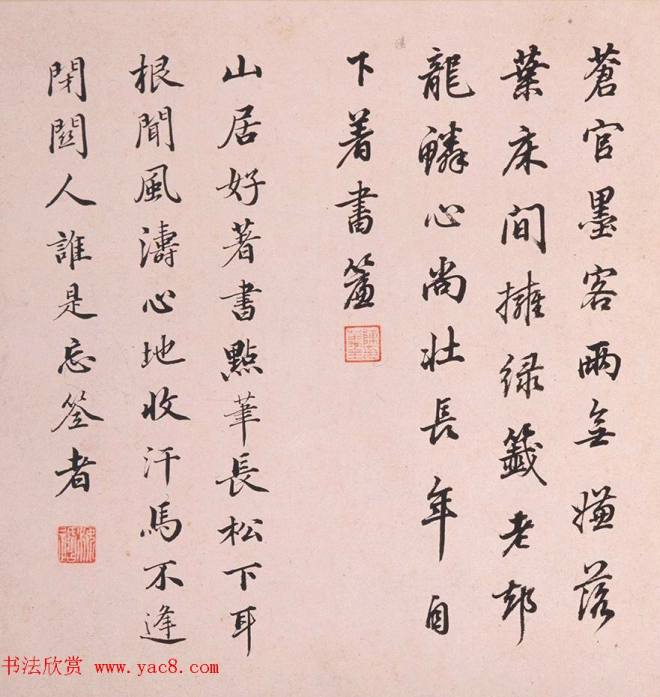 蒼官墨客兩無嫌落
葉床間擁緑籤老却
龍鱗心尚壯長年自
下著書簾
山居好著書點筆長松下耳
根聞風濤心地收汗馬不逢
閉關人誰是忘筌者
书法欣赏 www.yac8.com